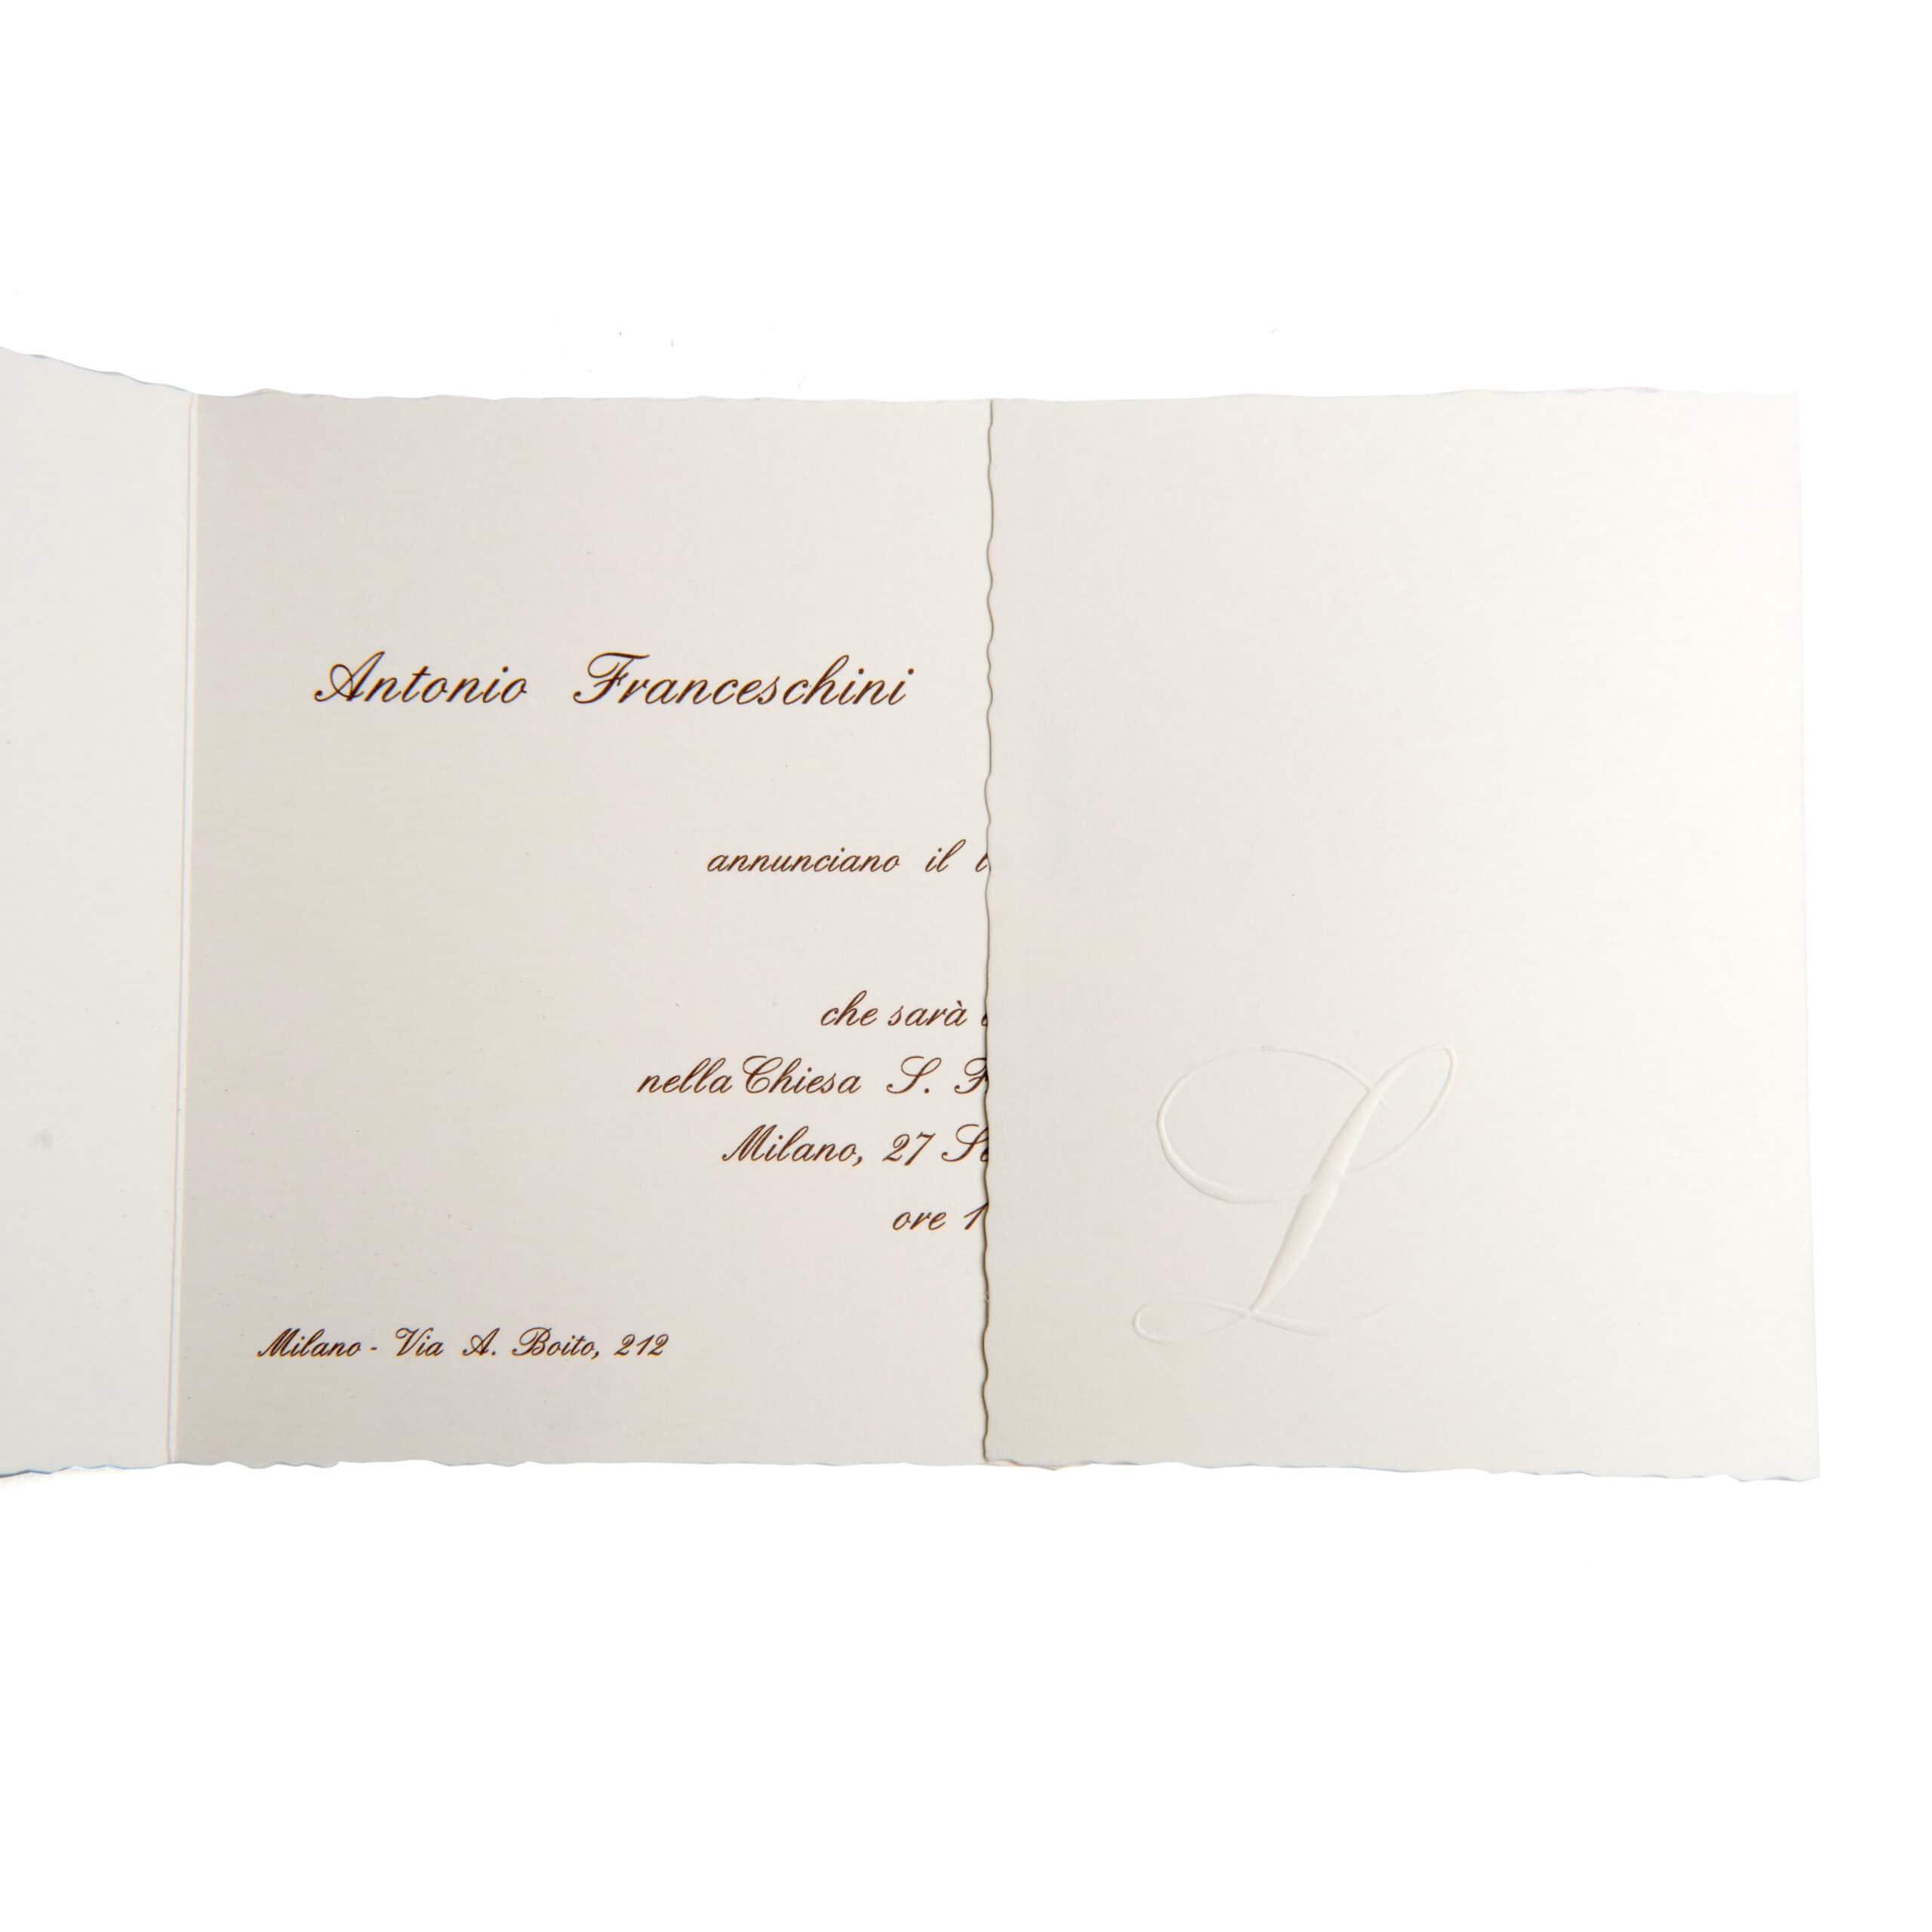 Antonio Franceschini
annunciano il
che sarà
nella Chiesa S.
Milano, 27
ore
Milano - Via A. Boito, 212
L